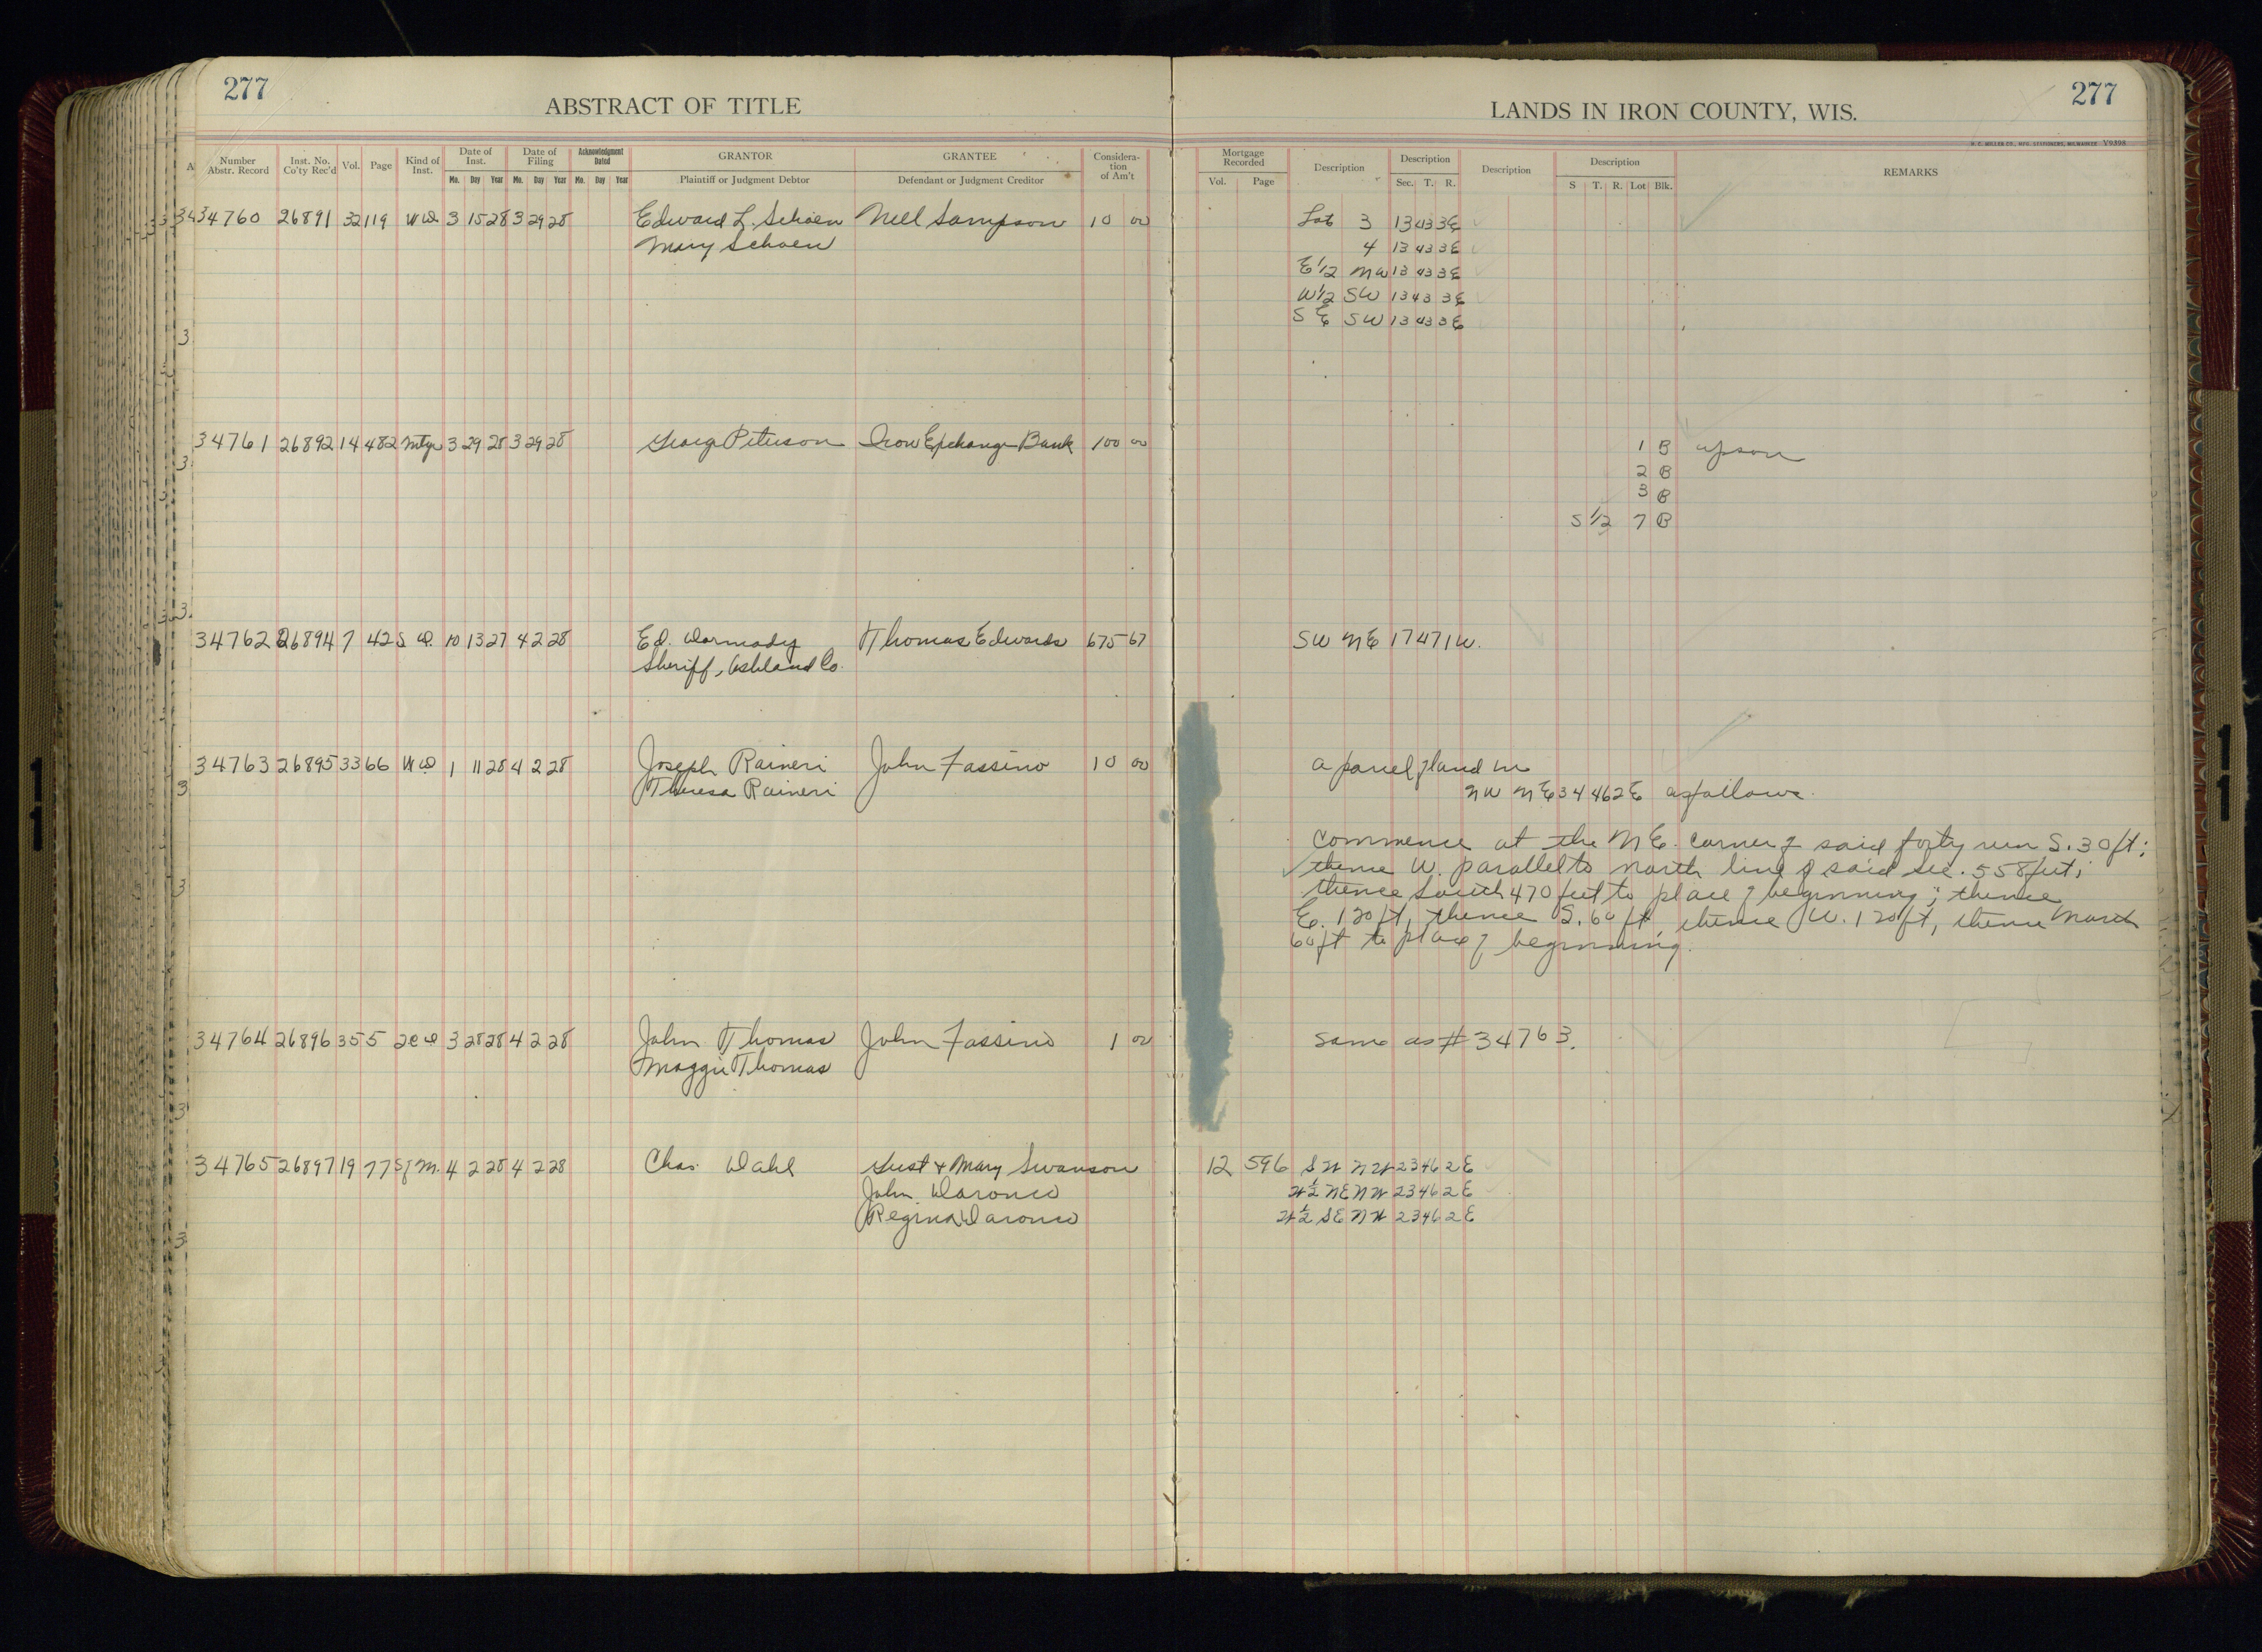 277
ABSTRACT OF TITLE
LANDS IN IRON COUNTY, WIS.
277
H. C. MILLER CO., MFG. STATIONERS, MILWAUKEE V9398
Number Abstr. Record Inst. No. Co'ty Rec'd Vol. Page Kind of Inst. Date of Inst. Date of Filing Acknowledgment Dated GRANTOR GRANTEE Considera-tion of Am't Mortgage Recorded Description Description Description Description REMARKS
Mo. Day Year Mo. Day Year Mo. Day Year Plaintiff or Judgment Debtor Defendant or Judgment Creditor Vol. Page Sec. T. R. S T. R. Lot Blk.
34760 26891 32 119 WD 3 15 28 3 29 28 Edward L. Schoen Nell Sampson 10 00 Lot 3 13 43 3E
Mary Schoen 4 13 43 3E
E 1/2 NW 13 43 3E
W 1/2 SW 13 43 3E
SE SW 13 43 3E
34761 26892 14 482 Mtge 3 29 28 3 29 28 Georg Peterson Iron Exchange Bank 100 00 1 B Upson
2 B
3 B
S 1/2 7 B
34762 26894 7 42 S D. 10 13 27 4 2 28 Ed. Dormady Thomas Edwards 675 67 SW NE 17 47 1W.
Sheriff, Ashland Co.
34763 26895 33 66 WD 1 11 28 4 2 28 Joseph Raineri John Fassino 10 00 a parcel of land in
Theresa Raineri NW NE 34 46 2E as follows.
Commence at the NE. corner of said forty run S. 30 ft;
thence W. parallel to north line of said sec. 558 feet;
thence South 470 feet to place of beginning; thence
E. 120 ft, thence S. 60 ft, thence W. 120 ft, thence North
60 ft to place of beginning.
34764 26896 35 5 2CD 3 28 28 4 2 28 John Thomas John Fassino 1 00 Same as # 34763.
Maggie Thomas
34765 26897 19 77 Sf M. 4 2 28 4 2 28 Chas. Dahl Gust + Mary Swanson 12 596 SW NW 23 46 2E
John Daronco W 1/2 NE NW 23 46 2E
Regina Daronco W 1/2 SE NW 23 46 2E